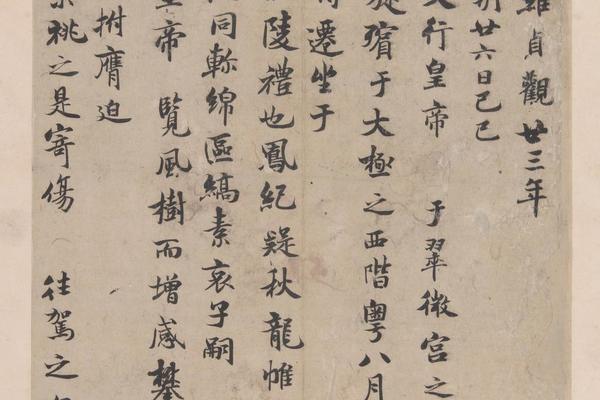 維貞觀廿三年
朔廿六日己巳
大行皇帝 于翠微宮之
旋殯于大極之西階粵八月
遷坐于
陵禮也鳳紀疑秋龍帷
同軫綿區縞素哀子嗣
皇帝 覽風樹而增感攀
拊膺迫
祧之是寄傷 往駕之